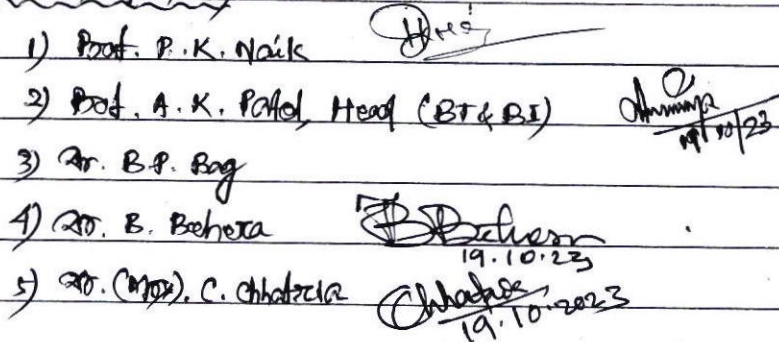 1) Prof. P. K. Naik
2) Prof. A. K. Patel, Head (BT & BI) 19/10/23
3) Dr. B.P. Bag
4) Dr. B. Behera BBehera
19.10.23
5) Dr. (Mrs). C. Chhatria Chhatria
19.10.2023